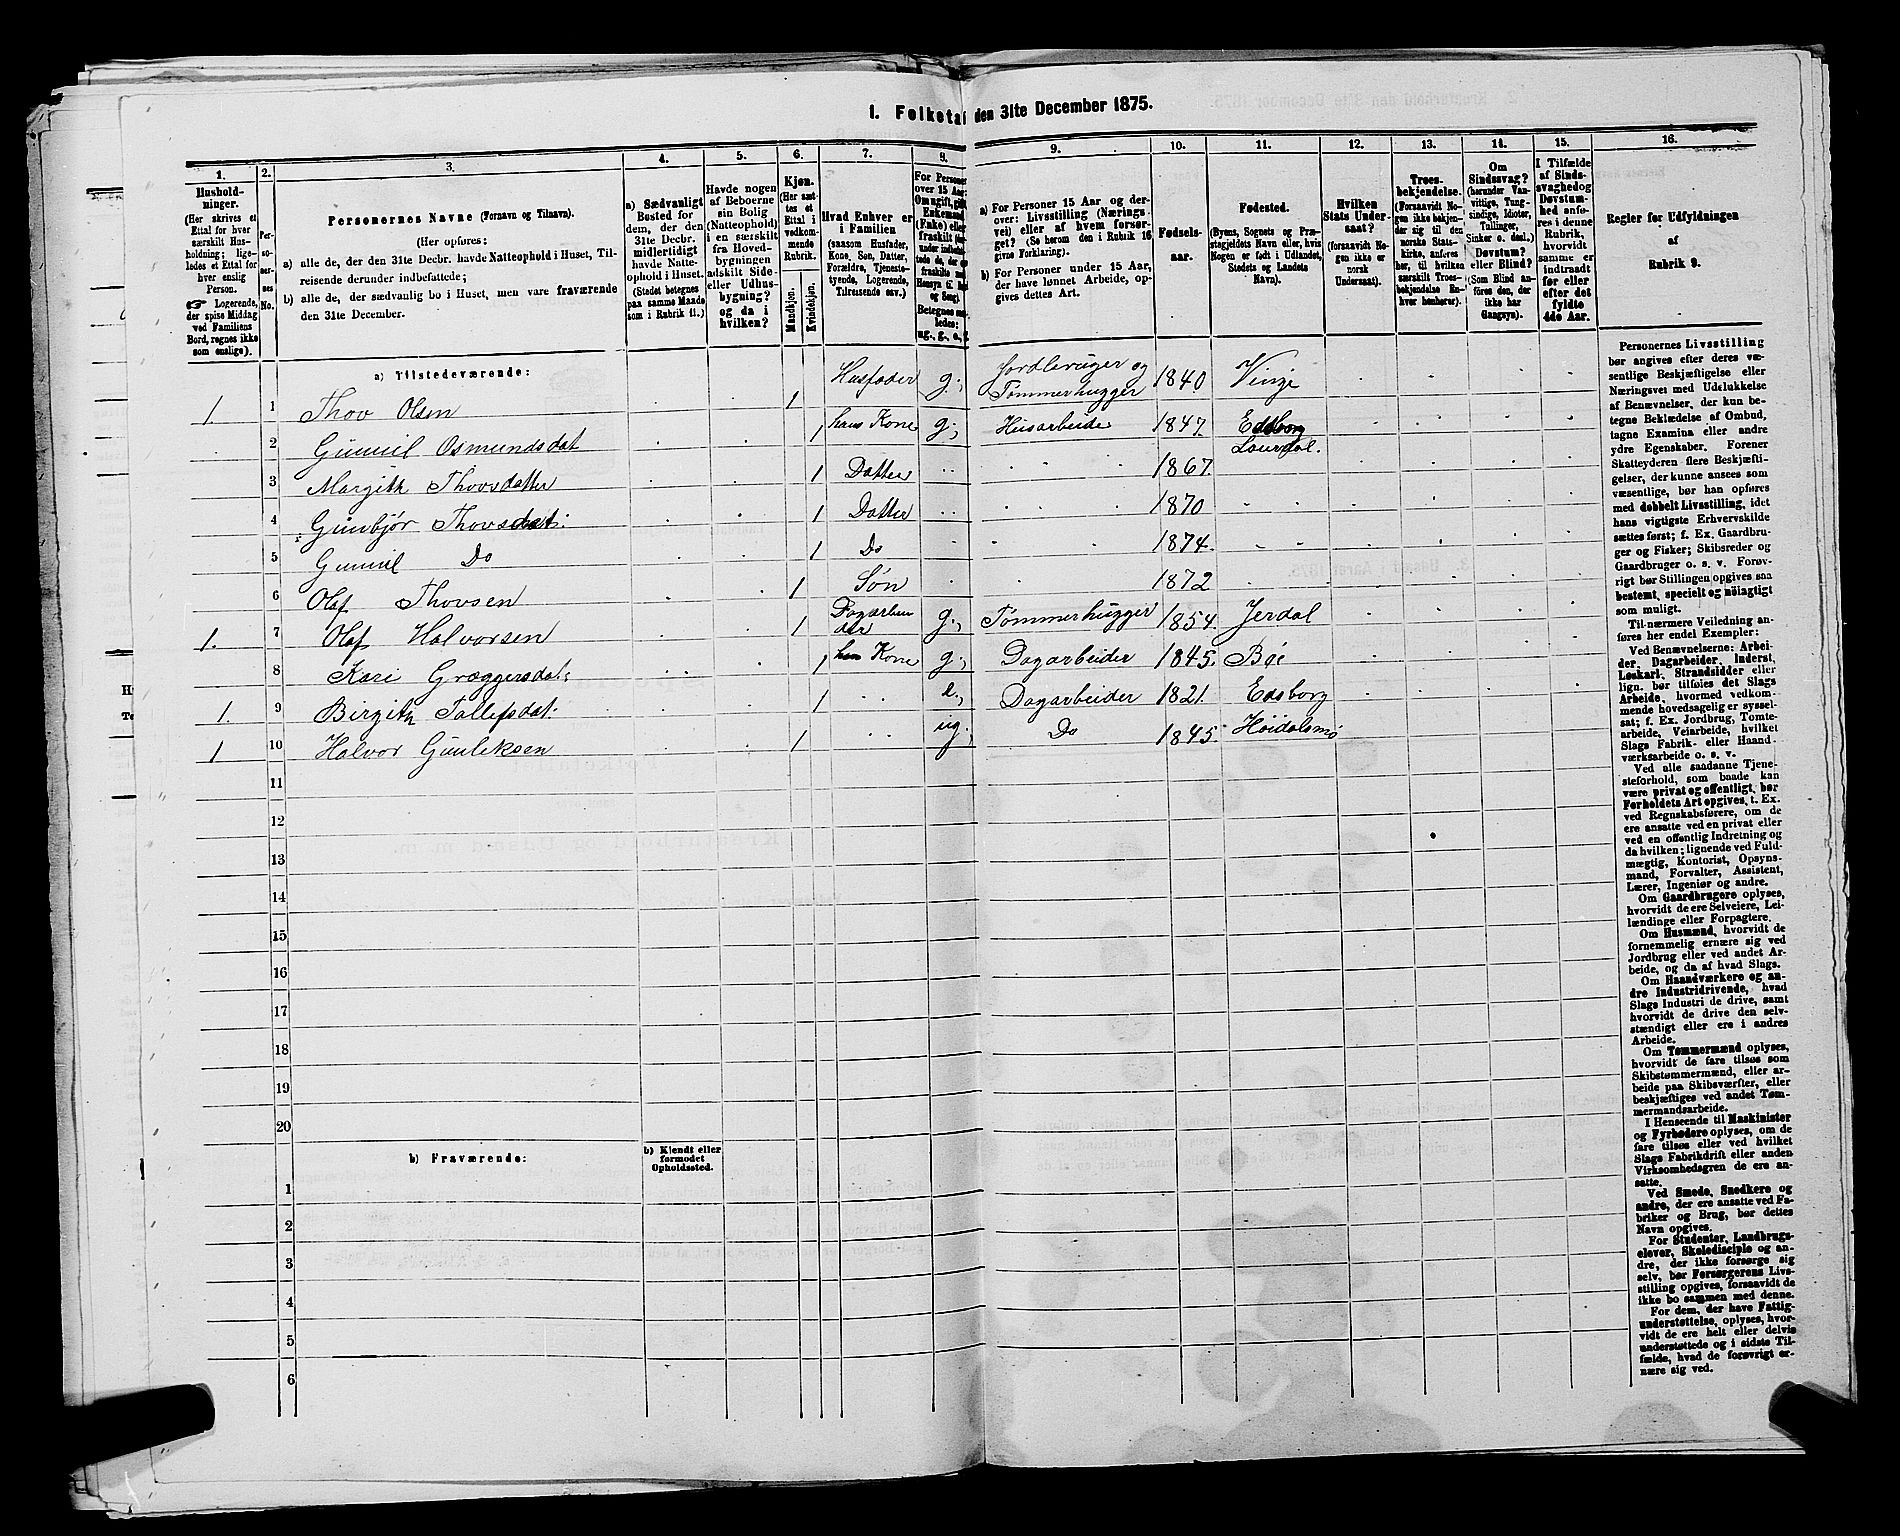 I. Folketal den 31te December 1875.
1. 2. 3. 4. 5. 6. 7. 8. 9. 10. 11. 12. 13. 14. 15. 16.
Hushold-
ninger.
(Her skrives et
Ettal for hver
særskilt Hus-
holdning; lige-
ledes et Ettal for
hver enslig
Person.
☞ Logerende,
der spise Middag
ved Familiens
Bord, regnes ikke
som enslige).
Per-
so-
ner-
nes
No.
Personernes Navne (Fornavn og Tilnavn).
(Her opføres:
a) alle de, der den 31te Decbr. havde Natteophold i Huset, Til-
reisende derunder indbefattede;
b) alle de, der sædvanlig bo i Huset, men vare fraværende
den 31te December.
a) Sædvanligt
Bosted for
dem, der den
31te Decbr.
midlertidigt
havde Natte-
ophold i Huset.
(Stedet betegnes
paa samme Maade
som i Rubrik 11.)
Havde nogen
af Beboerne
sin Bolig
(Natteophold)
i en særskilt
fra Hoved-
bygningen
adskilt Side-
eller Udhus-
bygning?
og da i
hvilken?
Kjøn.
(Her sæt-
tes et
Ettal i
vedkom-
mende
Rubrik.
Mandkjøn.
Kvindekjøn.
Hvad Enhver er
i Familien
(saasom Husfader,
Kone, Søn, Datter,
Forældre, Tjeneste-
tyende, Logerende,
Tilreisende osv.)
For Personer
over 15 Aar:
a) For Personer 15 Aar og der-
over: Livsstilling (Nærings-
vei) eller af hvem forsør-
get? (Se herom den i Rubrik 16
givne Forklaring).
b) For Personer under 15 Aar,
der have lønnet Arbeide, op-
gives dettes Art.
Fødsels-
aar.
Fødested.
(Byens, Sognets og Præ-
stegjeldets Navn eller, hvis
Nogen er født i Udlandet,
Stedets og Landets
Navn).
Hvilken
Stats Under-
saat?
(forsaavidt No-
gen ikke er
norsk
Undersaat).
Troes-
bekjendelse.
(Forsaavidt No-
gen ikke bekjen-
der sig til den
norske Stats-
kirke, anføres
her, til hvilken
særskilt Troes-
bekjendelse En-
hver henhører).
Om
Sindssvag?
(herunder Van-
vittige, Tung-
sindige, Idioter,
Tullinger,
Sinker o. desl.)
Døvstum?
eller Blind?
(Som Blind an-
føres den, der
ikke har
Gangsyn).
I Tilfælde
af Sinds-
svaghed og
Døvstum-
hed anfø-
res i denne
Rubrik,
hvorvidt
samme er
indtraadt
før eller
efter det
fyldte
4de Aar.
Regler for Udfyldningen
af
Rubrik 9.
a) Tilstedeværende:
1 1 Thov Olsen 1 Husfader g. Jordbruger og Tømmerhugger 1840 Vinje
2 Gunnil Osmundsdat 1 hans Kone g. Husarbeide 1847 Edsborg Laurdal.
3 Margith Thovsdatter 1 Datter 1867
4 Gunbjør Thovsdat. 1 Datter 1870
5 Gunnil Do 1 Do 1874
6 Olaf Thovsen 1 Søn 1872
1. 7 Olaf Halvorsen 1 g. Tømmerhugger 1854. Jerdal
8 Kari Græggersdat. 1 Kone g. Dagarbeider 1845. Bøe
1. 9 Birgith Tallefsdat. 1 e. Dagarbeider 1821. Edsborg
1 10 Halvor Gunleksen 1 ug. Do 1845. Høidalsmo
11
12
13
14
15
16
17
18
19
20
b) Fraværende:
b) Kjendt eller
formodet
Opholdssted.
1
2
3
4
5
6
Personernes Livsstilling
bør angives efter deres væ-
sentlige Beskjæftigelse eller
Næringsvei med Udelukkelse
af Benævnelser, der kun be-
tegne Beklædelse af Ombud,
tagne Examina eller andre
ydre Egenskaber. Forener
Skatteyderen flere Beskjæfti-
gelser, der kunne ansees som
væsentlige, bør han opføres
med dobbelt Livsstilling, idet
hans vigtigste Erhvervskilde
sættes først; f. Ex. Gaardbru-
ger og Fisker; Skibsreder og
Gaardbruger o. s. v. Forøv-
rigt bør Stillingen opgives saa
bestemt, specielt og nöiagtigt
som muligt.
Til nærmere Veiledning an-
føres her endel Exempler:
Ved Benævnelserne: Arbei-
der, Dagarbeider, Inderst,
Løskarl, Strandsidder eller
lign. bør tilføies det Slags
Arbeide, hvormed vedkom-
mende hovedsagelig er syssel-
sat; f. Ex. Jordbrug, Tomte-
arbeide, Veiarbeide, hvilket
Slags Fabrik- eller Haand-
værksarbeide o. s. v.
Ved alle saadanne Tjene-
steforhold, som baade kan
være privat og offentligt, bør
Forholdets Art opgives, t. Ex.
ved Regnskabsførere, om de
ere ansatte ved en privat eller
ved en offentlig Indretning og
da hvilken; lignende ved Fuld-
mægtig, Kontorist, Opsyns-
mand, Forvalter, Assistent,
Lærer, Ingeniør og andre.
Om Gaardbrugere oplyses,
hvorvidt de ere Selveiere, Lei-
lændinge eller Forpagtere.
Om Husmænd, hvorvidt de
fornemmelig ernære sig ved
Jordbrug eller ved andet Ar-
beide, og da af hvad Slags.
Om Haandværkere og an-
dre Industridrivende, hvad
Slags Industri de drive, samt
hvorvidt de drive den selv-
stændigt eller ere i andres
Arbeide.
Om Tømmermænd oplyses,
hvorvidt de fare tilsøs som
Skibstømmermænd, eller ar-
beide paa Skibsværfter, eller
beskjæftiges ved andet Tøm-
mermandsarbeide.
I Henseende til Maskinister
og Fyrbødere oplyses, om de
fare tilsøs eller ved hvilket
Slags Fabrikdrift eller anden
Virksomhedsgren de ere an-
satte.
Ved Smede, Snedkere og
andre, der ere ansatte ved Fa-
briker og Brug, bør dettes
Navn opgives.
For Studenter, Landbrugs-
elever, Skoledisciple og an-
dre, der ikke forsørge sig
selv, bør Forsørgerens Livs-
stilling opgives, forsaavidt de
ikke bo sammen med denne.
For dem, der have Fattig-
understøttelse, oplyses, hvor-
vidt de ere helt eller delvis
understøttede og i sidste Til-
fælde, hvad de forøvrigt er-
nære sig ved.